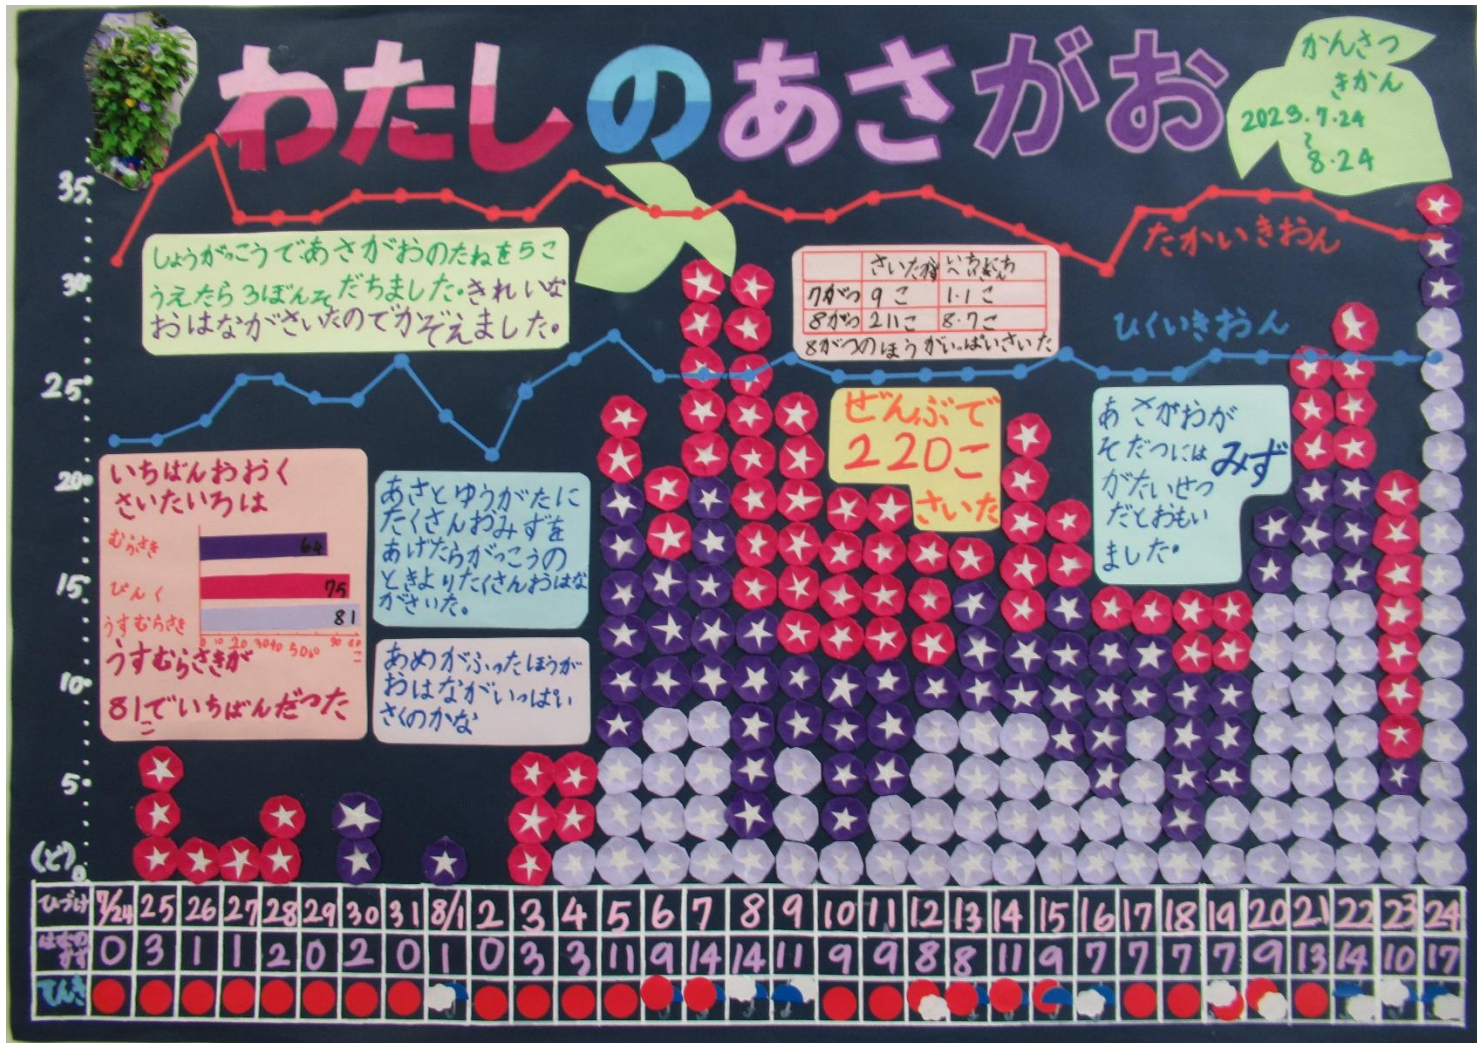 わたしのあさがお
かんさつ
きかん
2023.7.24
〜
8.24
たかいきおん
ひくいきおん
しょうがっこうであさがおのたねを5こ
うえたら3ぼんそだちました。きれいな
おはながさいたのでかぞえました。
さいた
7がつ 9こ 1.1こ
8がつ 211こ 8.7こ
8がつのほうがいっぱいさいた
ぜんぶで
220こ
さいた
あさがおが
そだつにはみず
がたいせつ
だとおもい
ました。
いちばんおおく
さいたいろは
むらさき 64
ぴんく 75
うすむらさき 81
うすむらさきが
81こでいちばんだった
あさとゆうがたに
たくさんおみずを
あげたらがっこうの
ときよりたくさんおはな
がさいた。
あめがふったほうが
おはながいっぱい
さくのかな
35
30
25
20
15
10
5
(ど)0
ひづけ 7/24 25 26 27 28 29 30 31 8/1 2 3 4 5 6 7 8 9 10 11 12 13 14 15 16 17 18 19 20 21 22 23 24
はなのかず 0 3 1 1 2 0 2 0 1 0 3 3 11 9 14 14 11 9 9 8 8 11 9 7 7 7 7 9 13 14 10 17
てんき